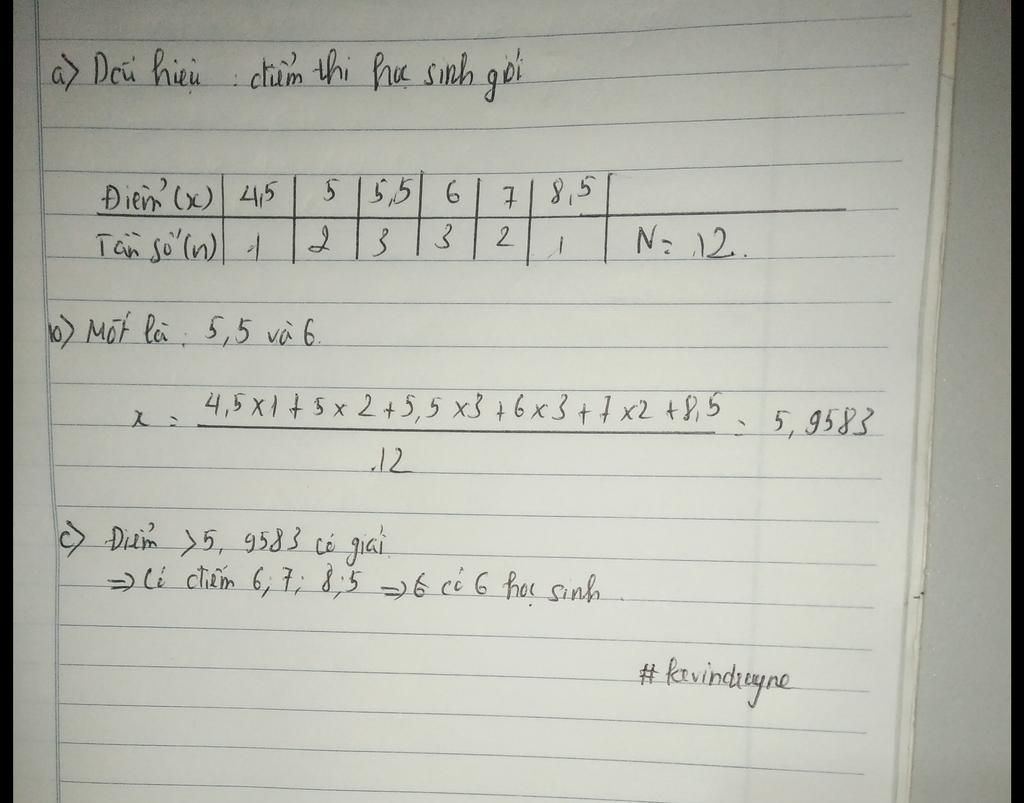 a) Dấu hiệu : điểm thi học sinh giỏi
Điểm (x) 4,5 5 5,5 6 7 8,5
Tần số (n) 1 2 3 3 2 1 N = 12.
b) Mốt là : 5,5 và 6.
x = 4,5 x 1 + 5 x 2 + 5,5 x 3 + 6 x 3 + 7 x 2 + 8,5 = 5,9583
12
c) Điểm > 5,9583 có giải
=> Có điểm 6; 7; 8,5 => có 6 học sinh.